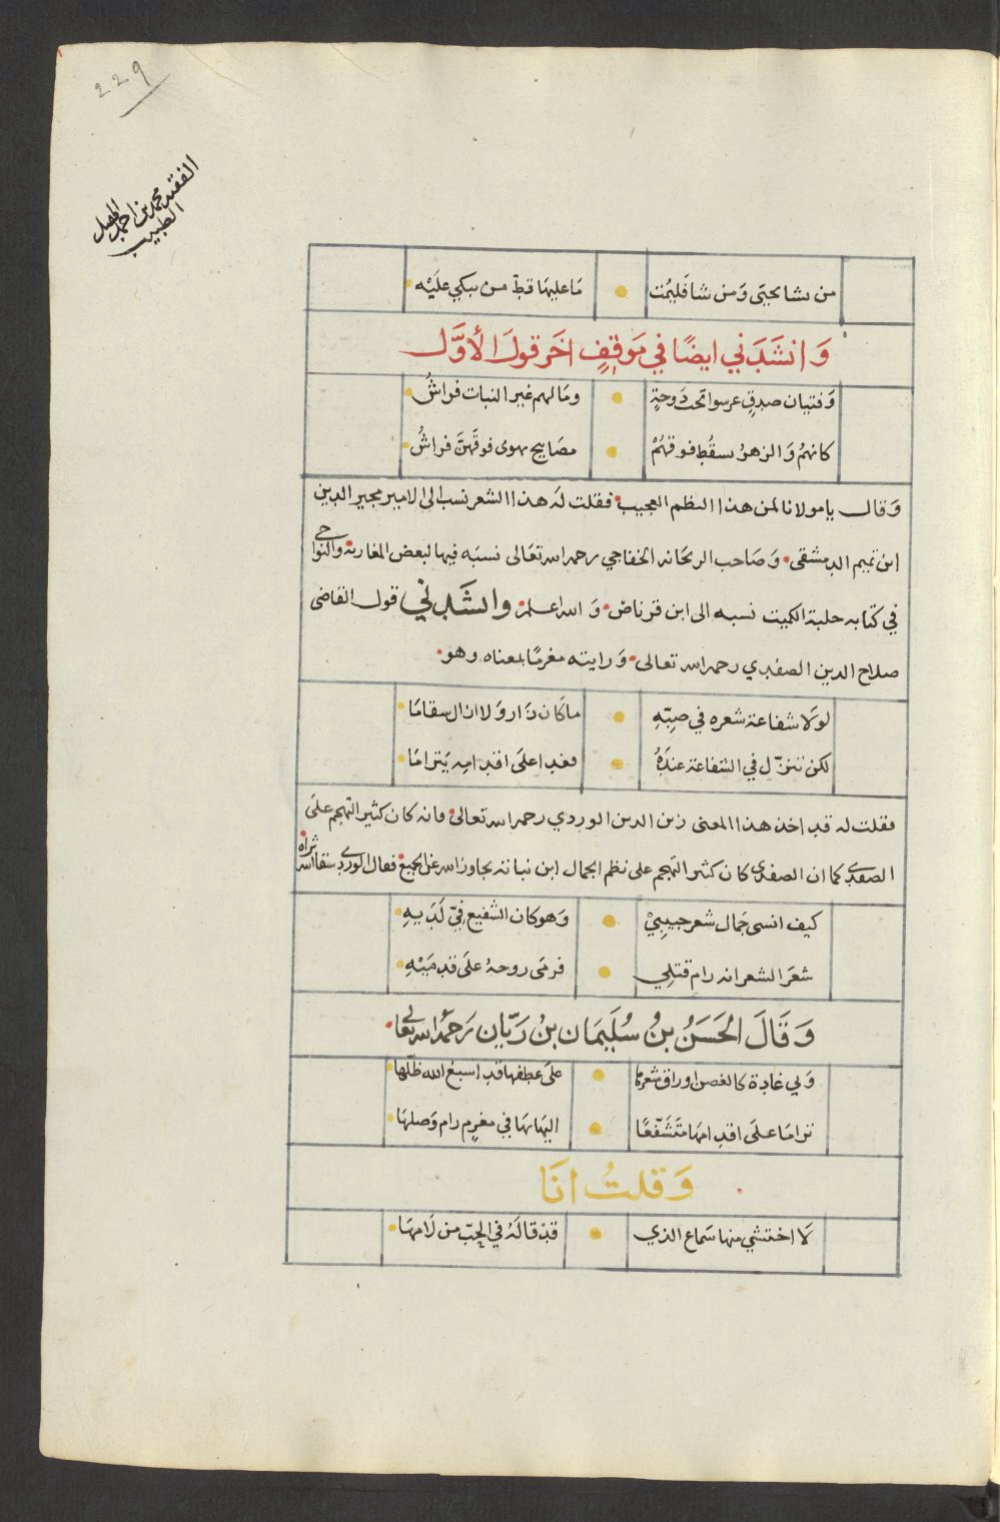 229
الفقيه محمد بن احمد
الطبيب
من شا يحيى وَمن شا فَليمُت مَا عليهَا قط من يبكي عليْه
وَانشدَني ايضًا في مَوقفٍ اخَر قولَ الأوَّل
وَفتيان صدقٍ عرسوا تحت دَوحةٍ ومَا لهم غير النبات فراشُ
كانهمُ وَالزهرُ يسقُط فوقهمُ مصَابيح يهوى فوقهنَّ فراشُ
وَقال يا مولانا لمن هذا النظم العجيب فقلت لَه هذا الشعر نسب الى الامير مجير الدين
ابن تميم الدمشقى وَصَاحب الريحَانه الخفاجي رحمه الله تعَالى نسبَه فيها لبعض المغاربة والنواجى
في كتابه حلبة الكميت نسبه الى ابن قرناص وَالله اعلم وانشدني قول القاضى
صلاح الدين الصفدي رحمه الله تعالى وَرايته مغرمًا بمعناه وهو
لولا شفاعة شعره في صبّهِ ما كان زَار وَلا ازال سقامَا
لكن تنزّل في الشفاعة عندَهُ فغدا على اقدامه يَترامَا
فقلت له قد اخذ هذا المعنى زين الدين الوردي رحمه الله تعالى فانه كان كثير التهجم علَى
الصفدي كما ان الصفدي كان كثير التهجم على نظم الجمال ابن نباته تجاوز الله عن الجميع فقال الوردي سقا الله ثراه
كيف انسى جمَال شعر حبيبيْ وَهو كان الشفيع فيّ لَدَيهِ
شعَر الشعر انه رام قتلِي فرمَى روحهُ علَى قدمَيْهِ
وَقَالَ الحَسَنُ بنُ سُلَيمَان بنُ رَيَّان رَحمهُ الله تعالى
وَلي غادة كالغصن اوراق شعرهَا على عطفها قد اسبغ الله ظلّها
ترامَا علَى اقدامهَا متَشَفّعًا اليهَا بهَا في مغرمٍ رام وَصلهَا
وَقلتُ انَا
لَا اختشي منها سَماع الذي قدْ قالَهُ في الحِبّ من لَامهَا